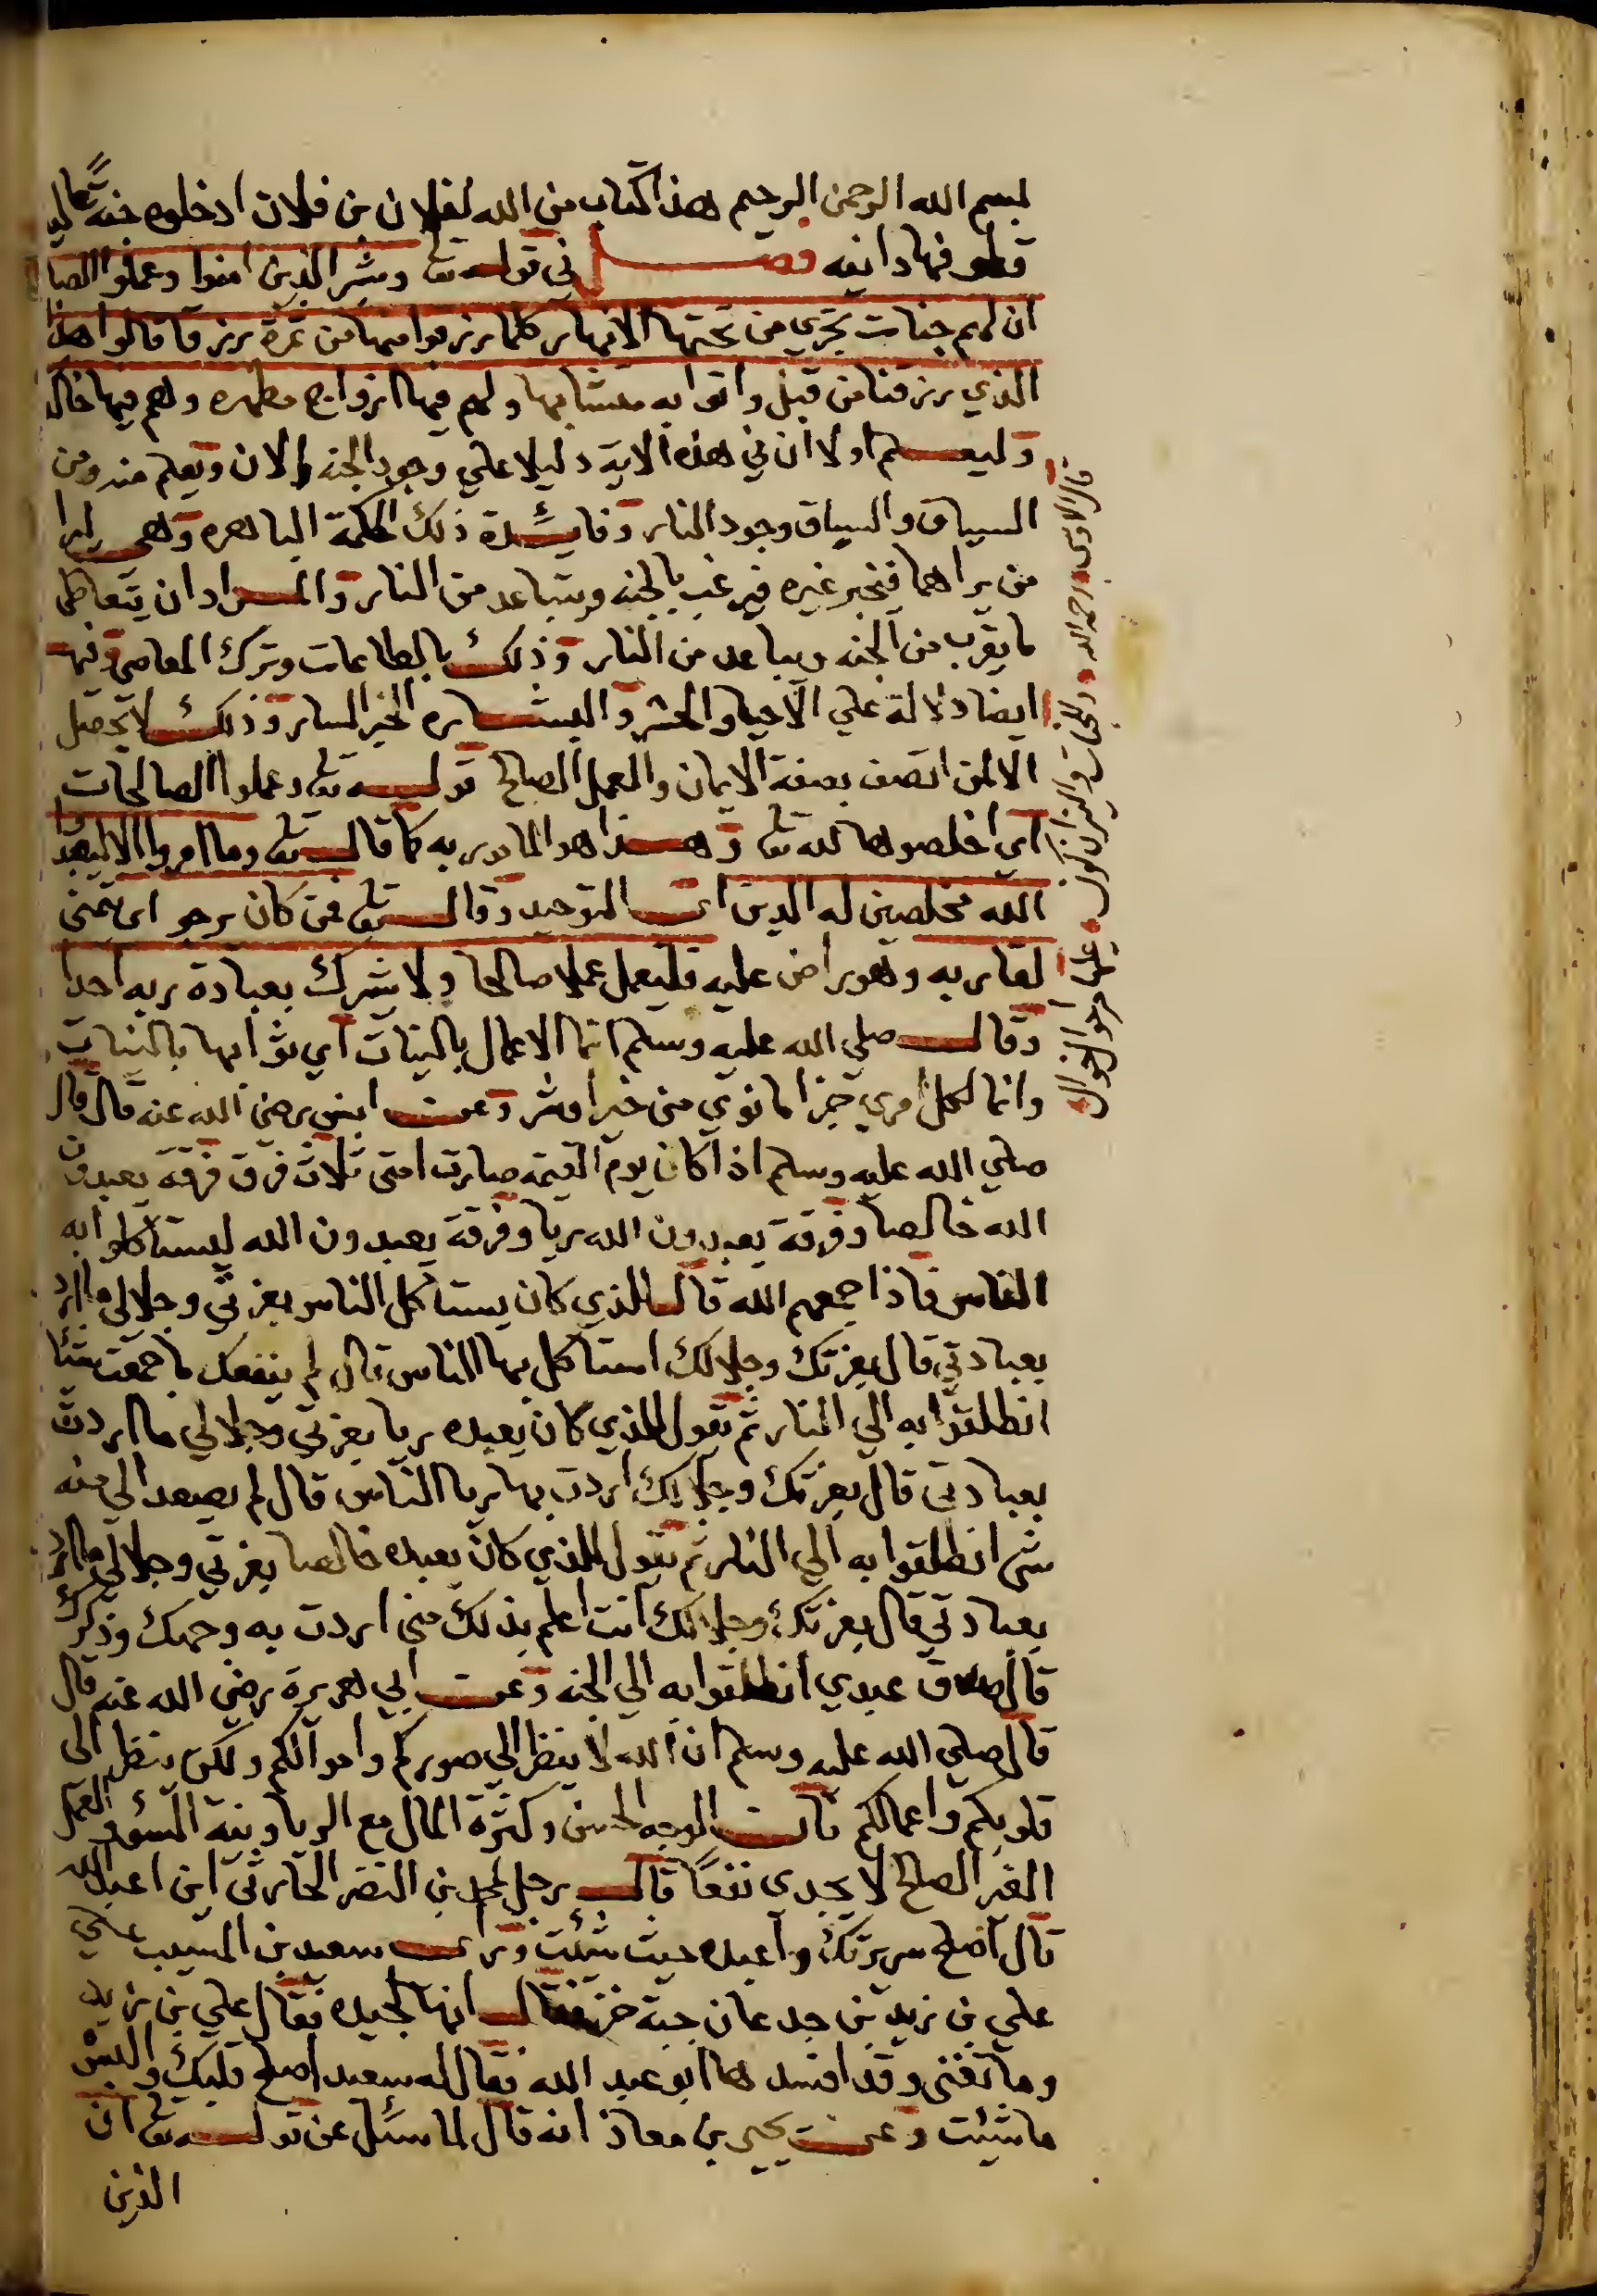 بسم الله الرحمن الرحيم هذا كتاب من الله لفلان بن فلان ادخلوه جنة عاليه
قطوفها دانيه فصل في قوله تع وبشر الذين امنوا وعملوا الصالحات
ان لهم جنات تجري من تحتها الانهار كلما رزقوا منها من ثمرة رزقا قالوا هذا
الذي رزقنا من قبل واتوا به متشابها ولهم فيها ازواج مطهره وهم فيها خالد
وليعلم اولا ان في هذه الاية دليلا على وجود الجنه الان ويعلم منه ومن
السياق والسباق وجود النار وفائدة ذلك الحكمة الباهره وهي ليرا
من يراهما فيخبر غيره فيرغب بالجنه ويتباعد من النار والمراد ان يتعاطى
ما يقرب من الجنه ويباعد من النار وذلك بالطاعات وترك المعاصي وفيها
ايضا دلالة علي الاحيا والحشر والبشاره الخبر السار وذلك لا يحصل
الا لمن اتصف بصفة الايمان والعمل الصالح قوله تع وعملوا الصالحات
اي اخلصوها لله تع وهذا هو المامور به كما قال تع وما امروا الا ليعبدوا
الله مخلصين له الدين اي التوحيد وقال تع فمن كان يرجو اي يتمنى
لقا ربه وهو راض عليه فليعمل عملا صالحا ولا يشرك بعبادة ربه احدا
وقال صلي الله عليه وسلم انما الاعمال بالنيات اي ثوابها بالنيات
وانما لكل امري جزا ما نوي من خير او شر وعن انس رضي الله عنه قال قال
صلي الله عليه وسلم اذا كان يوم القيمه صارت امتي ثلاث فرق فرقة يعبدون
الله خالصا وفرقة يعبدون الله ريا وفرقة يعبدون الله ليستاكلوا به
الناس فاذا جمعهم الله قال للذي كان يستاكل الناس بعزتي وجلالي ما اردت
بعبادتي قال بعزتك وجلالك استاكل بها الناس قال لم ينفعك ما جمعت شيا
انطلقوا به الي النار ثم يقول للذي كان يعبده ريا بعزتي وجلالي ما اردت
بعبادتي قال بعزتك وجلالك اردت بها ريا الناس قال لم يصعد الي منه
شي انطلقوا به الي النار ثم يقول للذي كان يعبده خالصا بعزتي وجلالي ما اردت
بعبادتي قال بعزتك وجلالك انت اعلم بذلك مني اردت به وجهك وذكرك
قال صدق عبدي انطلقوا به الي الجنه وعن ابي هريرة رضي الله عنه قال
قال صلي الله عليه وسلم ان الله لا ينظر الي صوركم واموالكم ولكن ينظر الى
قلوبكم واعمالكم فان الوجه الحسن وكثرة المال مع الريا ونية السؤ والعمل
الغير الصالح لا يجدي نفعا قال رجل لمحمد بن النضر الحارثي اين اعبد الله
قال اصلح سريرتك واعبده حيث شئت وراى سعيد بن المسيب علي
علي بن زيد بن جدعان جبة خز فقال انها لجيده فقال علي بن زيد
وما تغني وقد افسدها ابو عبد الله فقال له سعيد اصلح قلبك والبس
ما شيئت وعن يحيي بن معاذ انه قال لما سئل عن قوله تع ان
الذين
قال الاوسي رحمه الله للجنات والنيران نول علي احوال خوال